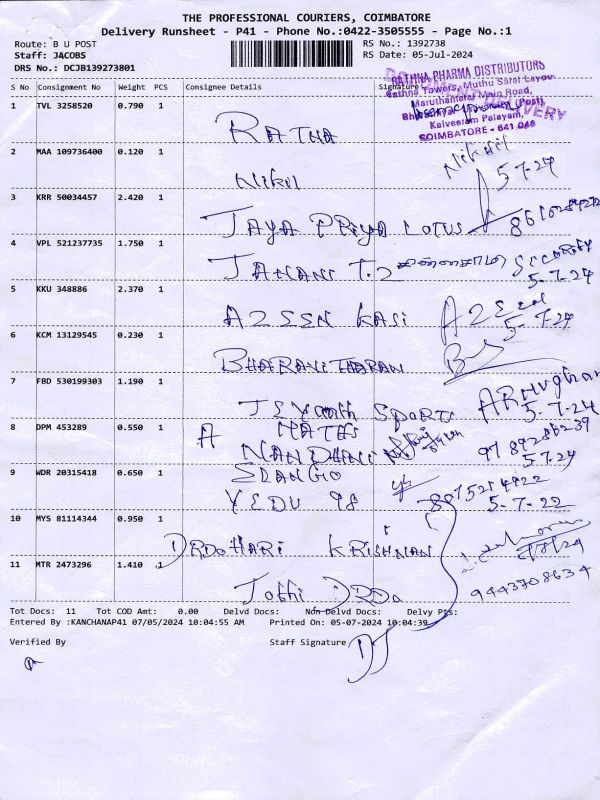 THE PROFESSIONAL COURIERS, COIMBATORE
Delivery Runsheet - P41 - Phone No.:0422-3505555 - Page No.:1
Route: B U POST
RS No.: 1392738
Staff: JACOBS
RS Date: 05-Jul-2024
DRS No.: DCJB139273801
RATHNA PHARMA DISTRIBUTORS
Rathna Towers, Muthu Sarai Layout
Maruthamalai Main Road,
(Post)
Kalveeram Palayam,
COIMBATORE - 641 046
DELIVERY
S No Consignment No Weight PCS Consignee Details Signature
1 TVL 3258520 0.790 1 RATHA
2 MAA 109736400 0.120 1 Nikil Nikhil 5-7-24
3 KRR 50034457 2.420 1 JAYA PRIYA LOTUS
4 VPL 521237735 1.750 1 JANANI T.2 5-7-24
5 KKU 348886 2.370 1 KASI 5-7-24
6 KCM 13129545 0.230 1 BHARANITHARAN
7 FBD 530199303 1.190 1 5-7-24
8 DPM 453289 0.550 1 NANDHINI 5-7-24
9 WDR 20315418 0.650 1 YEDU 98 5-7-22
10 MYS 81114344 0.950 1 DRDO HARI KRISHNAN
11 MTR 2473296 1.410 1 Jothi DRDO 9443708634
Tot Docs: 11 Tot COD Amt: 0.00 Delvd Docs: Non Delvd Docs: Delvy Pts:
Entered By :KANCHANAP41 07/05/2024 10:04:55 AM Printed On: 05-07-2024 10:04:39
Verified By Staff Signature